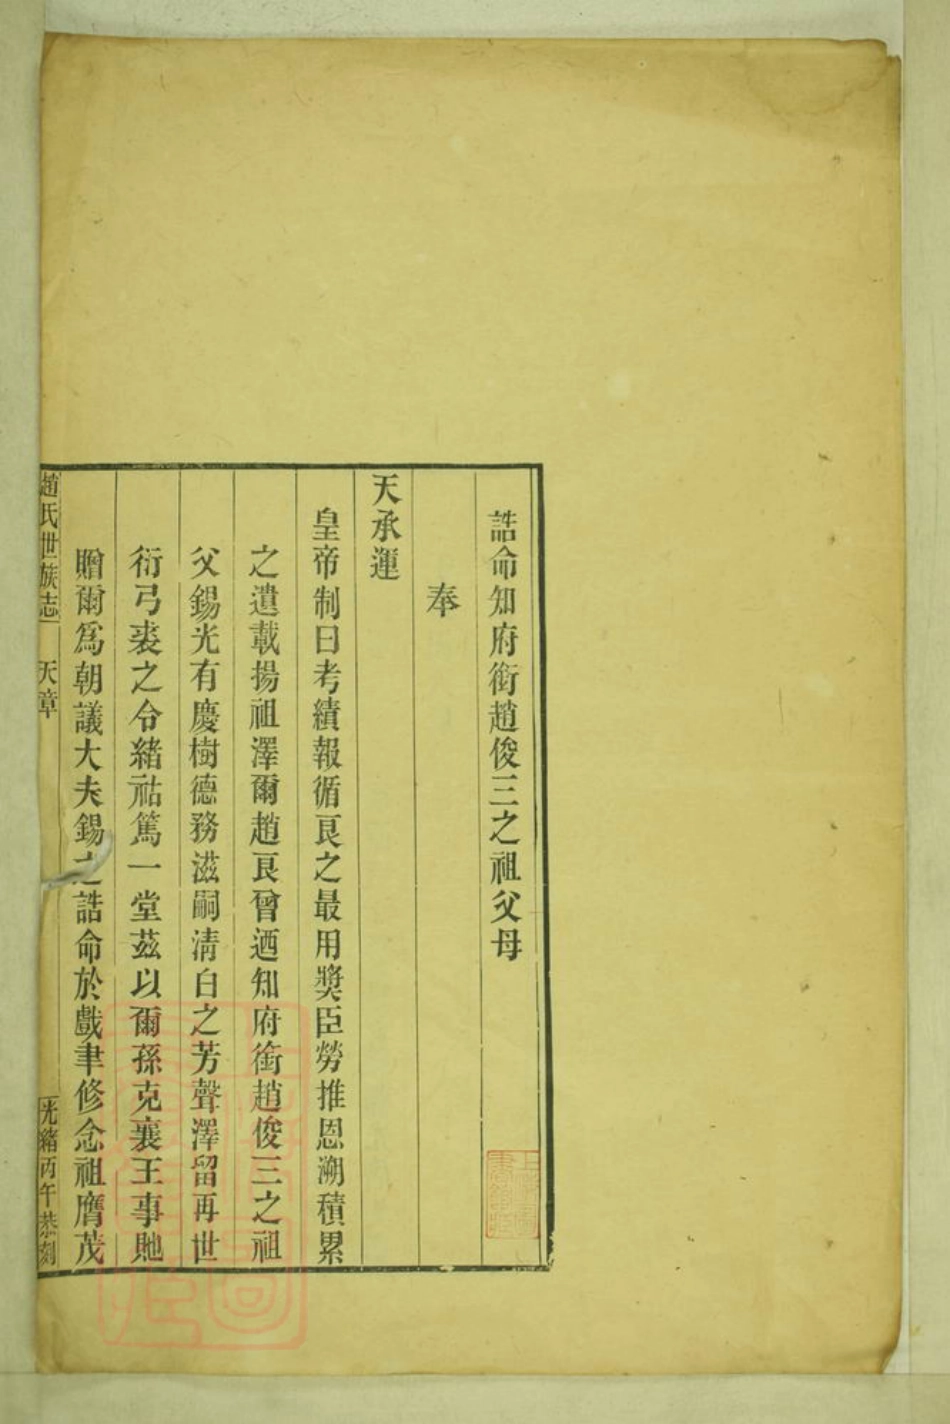 誥命知府銜趙俊三之祖父母
奉
天承運
皇帝制曰考績報循良之最用奬臣勞推恩溯積累
之遺載揚祖澤爾趙良曾迺知府銜趙俊三之祖
父錫光有慶樹德務滋嗣清白之芳聲澤留再世
衍弓裘之令緒祜篤一堂茲以爾孫克襄王事貤
贈爾爲朝議大夫錫之誥命於戲聿修念祖膺茂
趙氏世族志 天章 光緒丙午恭刻